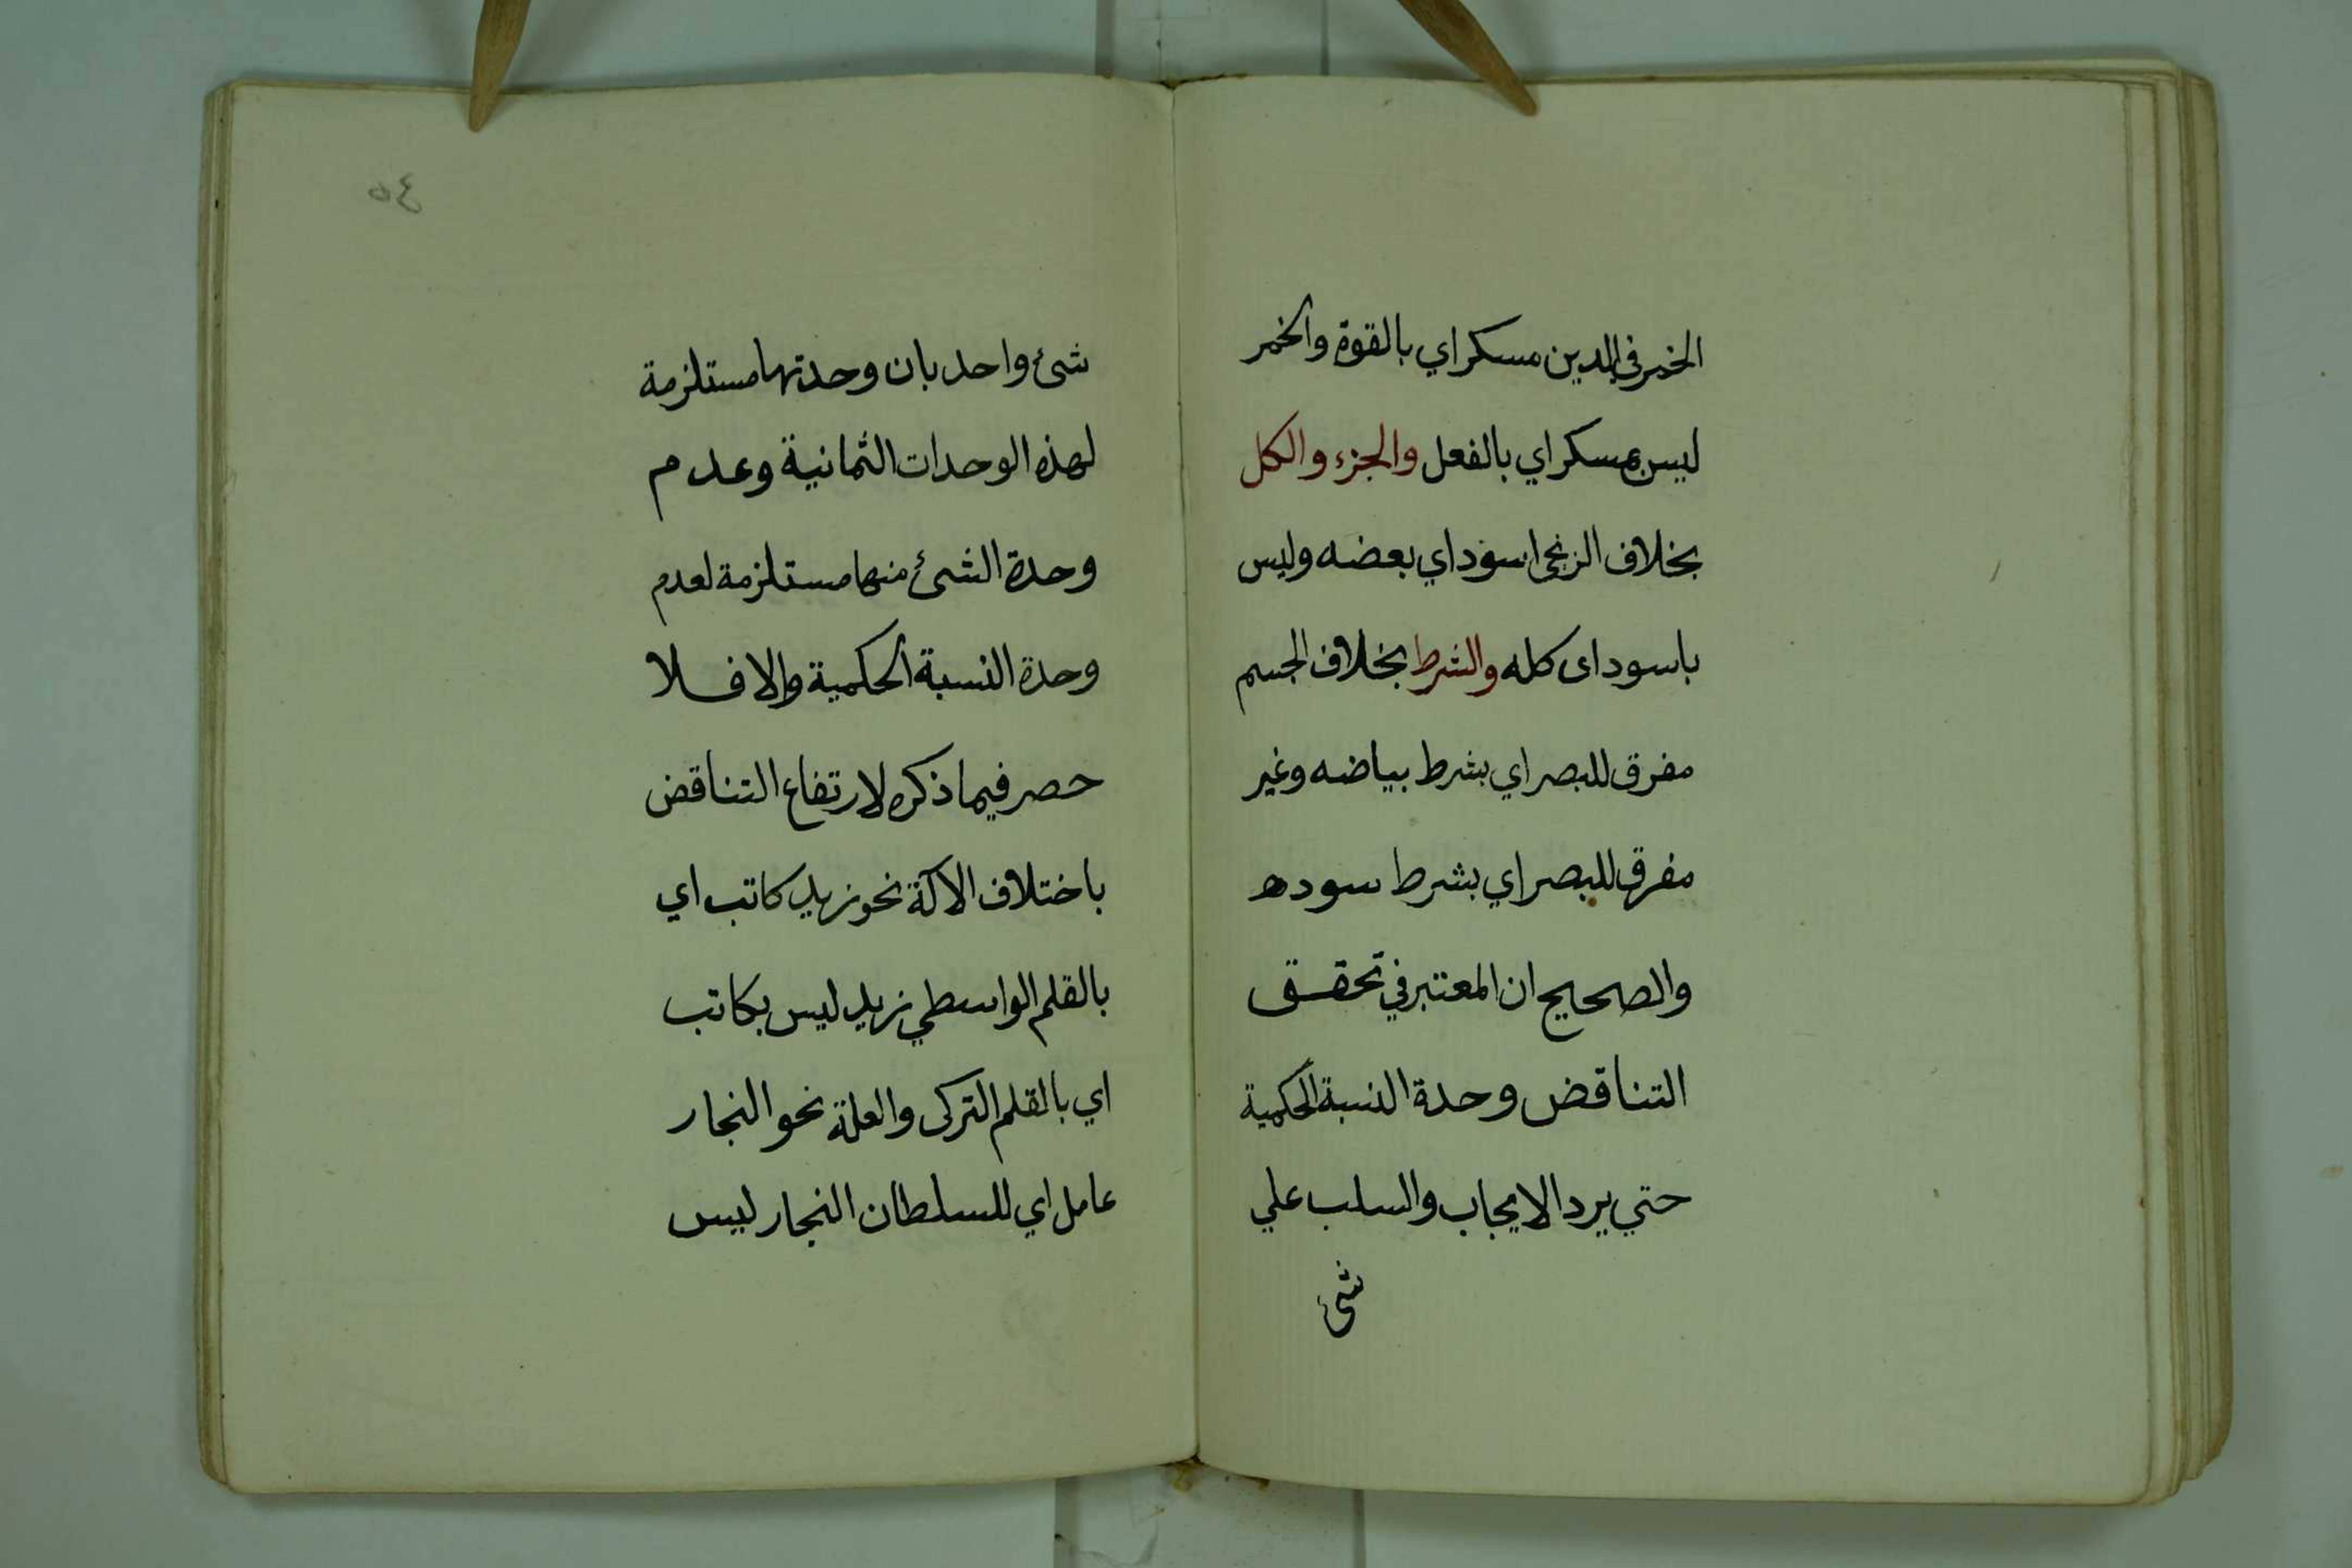 الخمر في الدن مسكر اي بالقوة والخمر
ليس بمسكر اي بالفعل والجزء والكل
بخلاف الزنجي اسود اي بعضه وليس
باسود اى كله والشرط بخلاف الجسم
مفرق للبصر اي بشرط بياضه وغير
مفرق للبصر اي بشرط سوده
والصحيح ان المعتبر في تحقق
التناقض وحدة النسبة الحكمية
حتي يرد الايجاب والسلب علي
شئ
٤٥
شئ واحد بان وحدتها مستلزمة
لهذه الوحدات الثمانية وعدم
وحدة الشئ منها مستلزمة لعدم
وحدة النسبة الحكمية والا فلا
حصر فيما ذكره لارتفاع التناقض
باختلاف الالة نحو زيد كاتب اي
بالقلم الواسطي زيد ليس بكاتب
اي بالقلم التركى والعلة نحو النجار
عامل اي للسلطان النجار ليس